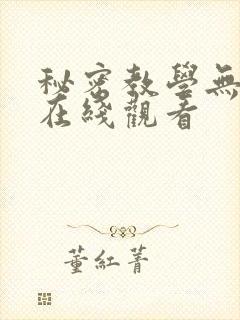 秘密教學無
在綫觀看
董紅菁